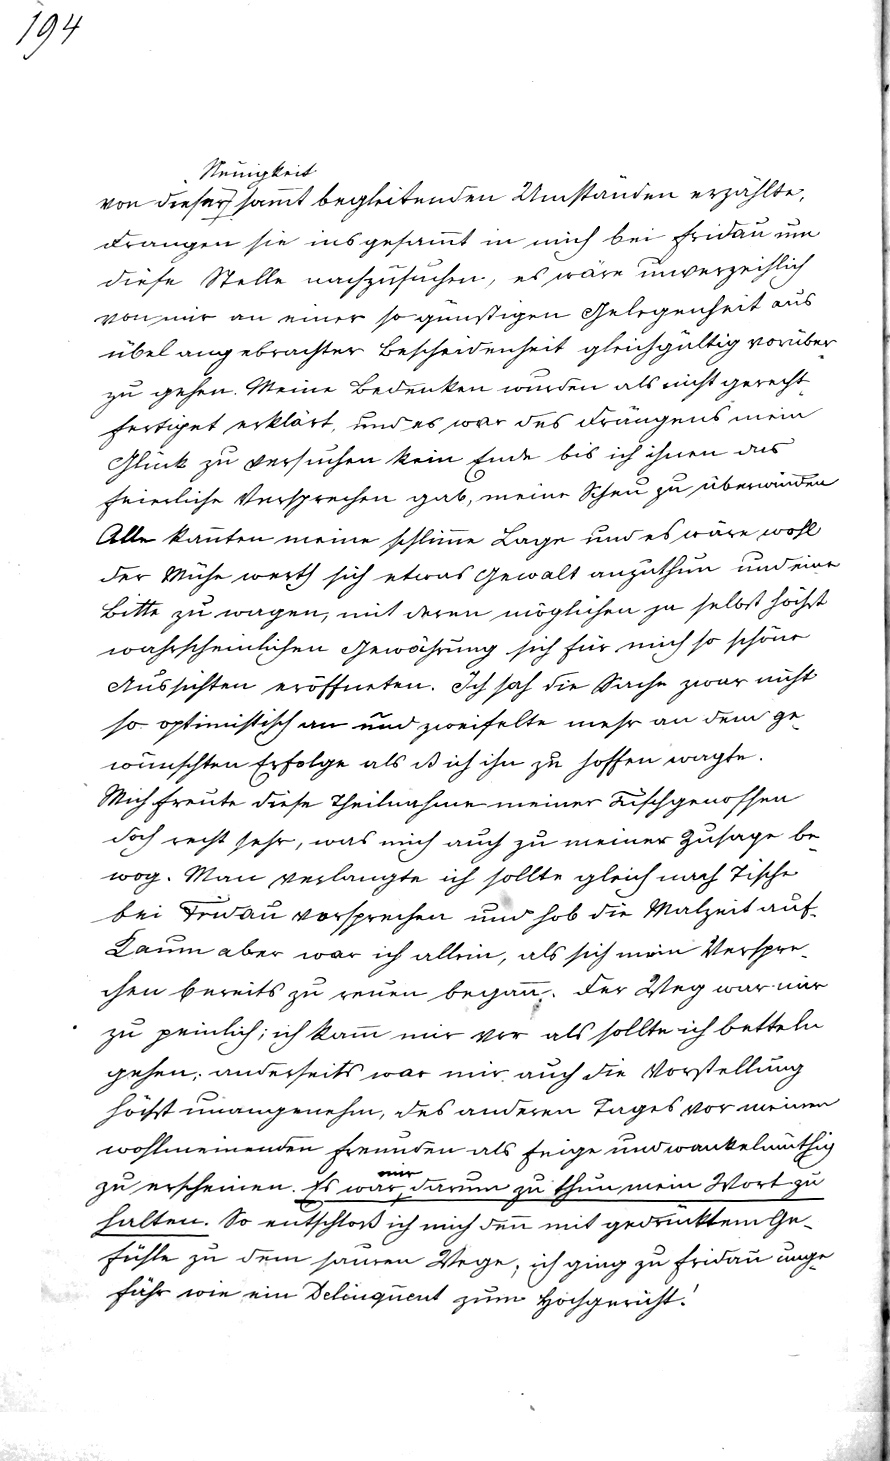 194
Neuigkeit
von dieser sam̅t begleitenden Umständen erzählte,
drangen sie insgesam̅t in mich bei Fridau um
diese Stelle nachzusuchen, es wäre unverzeihlich
von mir an einer so günstigen Gelegenheit aus
übel angebrachter Bescheidenheit gleichgültig vorüber-
zu gehen. Meine Bedenken wurden als nicht gerecht-
fertiget erklärt, und es war des Drängens mein
Glück zu versuchen kein Ende bis ich ihnen das
feierliche Versprechen gab, meine Scheu zu überwinden
Alle kan̅ten meine schlim̅e Lage und es wäre wohl
der Mühe werth sich etwas Gewalt anzuthun und eine
Bitte zu wagen, mit deren möglichen ja selbst höchst
wahrscheinlichen Gewährung sich für mich so schöne
Aussichten eröffneten. Ich sah die Sache zwar nicht
so optimistisch an und zweifelte mehr an dem ge-
wünschten Erfolge als ich ihn zu hoffen wagte.
Mich freute diese Theilnahme meiner Tischgenossen
doch recht sehr, was mich auch zu meiner Zusage be-
wog. Man verlangte ich sollte gleich nach Tische
bei Fridau vorsprechen und hob die Malzeit auf.
Kaum aber war ich allein, als sich mein Verspre-
chen bereits zu reuen began̅. Der Weg war mir
zu peinlich; ich kam̅ mir vor als sollte ich betteln
gehen; anderseits war mir auch die Vorstellung
höchst unangenehm, des anderen Tages vor meinen
wohlmeinenden Freunden als feige und wankelmüthig
zu erscheinen. Es war mir darum zu thun mein Wort zu
halten. So entschloß ich mich den̅ mit gedrücktem Ge-
fühle zu dem sauren Wege; ich ging zu Fridau unge-
fähr wie ein Delinquent zum Hochgericht!